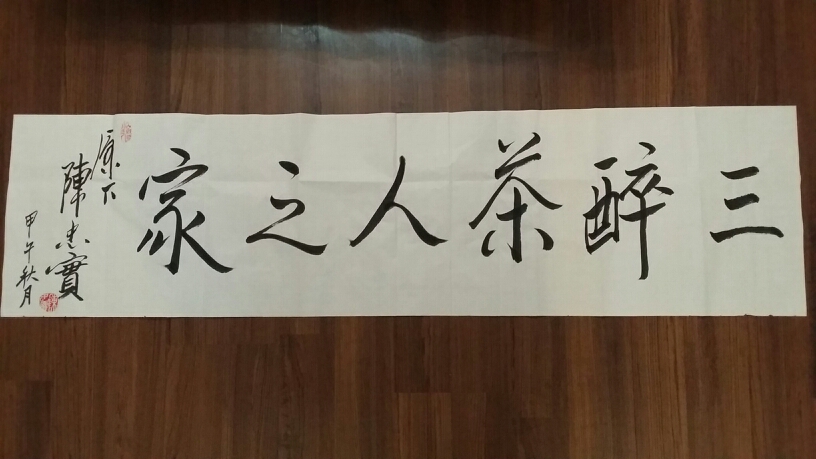 三醉茶人之家
原下
陳忠實
甲午秋月